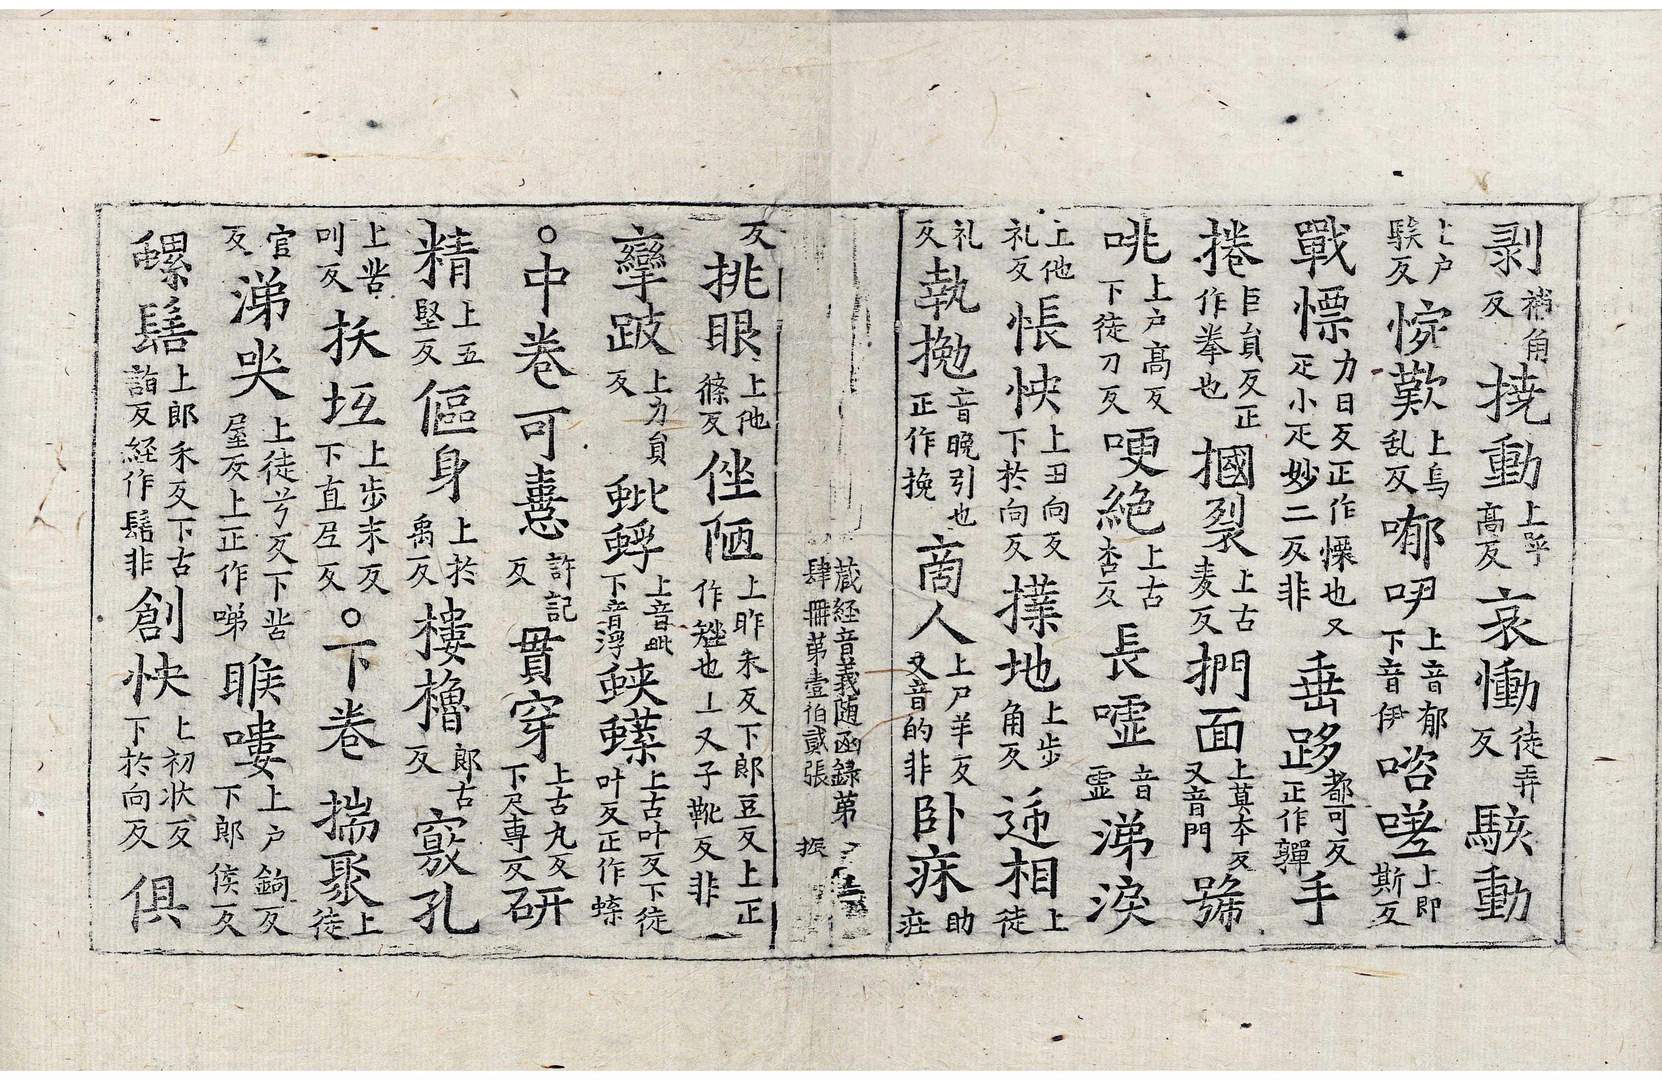 剥補角反撓動上呼高反哀慟徒弄反駭動
上户騃反惋歎上烏乱反喞吚上音郁下音伊嗞嗟上即斯反
戰慓力日反正作慄也又疋小疋妙二反非垂跢都可反正作嚲手
捲巨負反正作拳也摑裂上古麦反捫面上莫本反又音門號
咷上户高反下徒刀反哽絶上古杏反長嘘音虚涕淚
上他礼反悵怏上丑向反下於向反撲地上步角反逓相上徒
礼反執挽音晚引也正作挽啇人上尸羊反又音的非卧床助庄
藏経音義随函録弟肆冊第壹伯貳張 振
反挑眼上他篠反㘸陋上昨禾反下郎豆反上正作矬也上又子靴反非
攣跛上力負反蚍蜉上音毗下音浮蛺蝶上古叶反下徒叶反正作蝶
○中卷可憙許記反貫穿上古九反下尺專反研
精上五堅反傴身上於禹反樓櫓郎古反竅孔
上苦叫反抹坘上步末反下直尼反○下卷揣聚上徒
官反涕哭上徒兮反下苦屋反上正作啼睺嘍上户鉤反下郎侯反
螺髻上郎禾反下古詣反経作髻非創怏上初状反下於向反俱